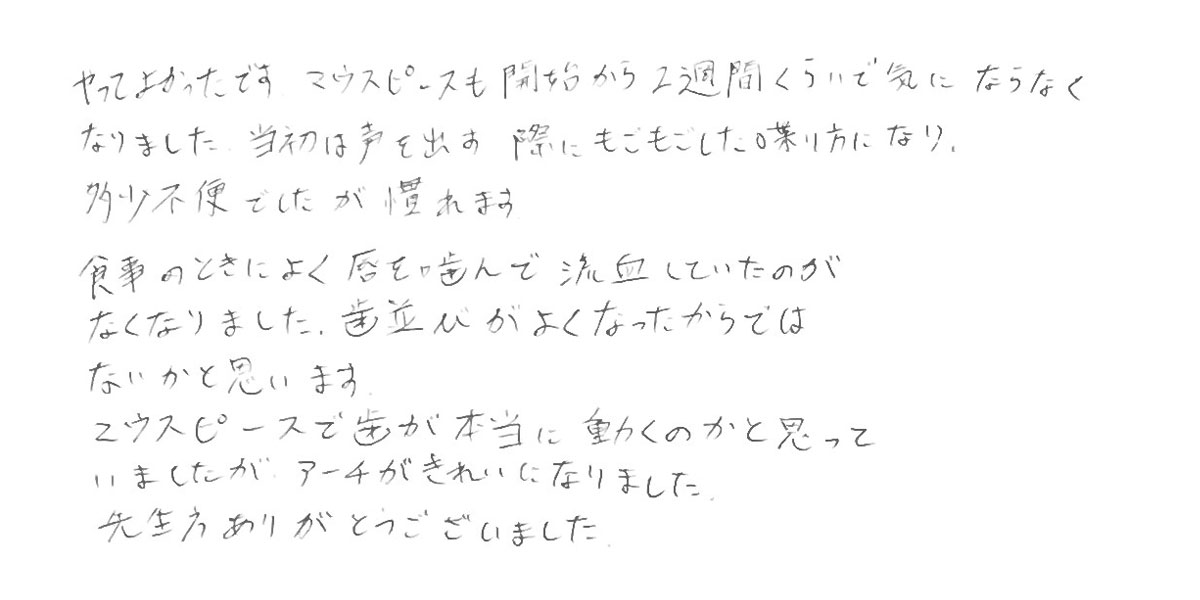 やってよかったです. マウスピースも開始から2週間くらいで気にならなく
なりました. 当初は声を出す際にもごもごした喋り方になり,
多少不便でしたが慣れます.
食事のときによく唇を噛んで流血していたのが
なくなりました. 歯並びがよくなったからでは
ないかと思います.
マウスピースで歯が本当に動くのかと思って
いましたが, アーチがきれいになりました.
先生方ありがとうございました.